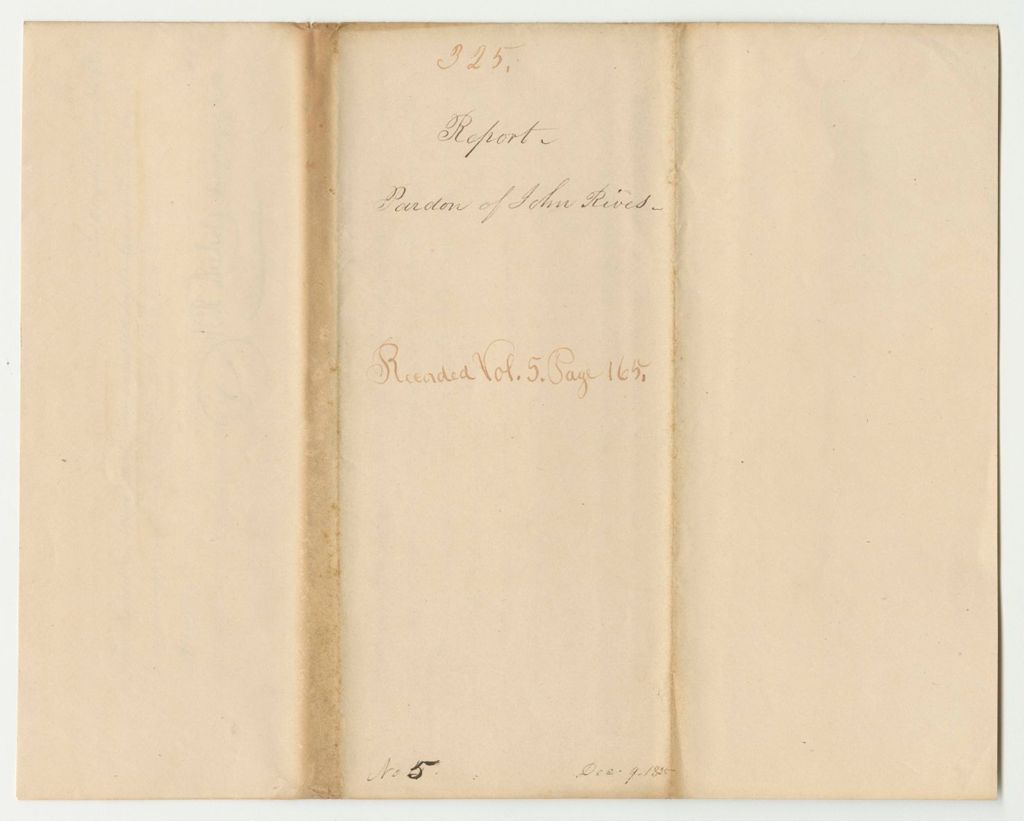 325.
Report-
Pardon of John Rives-
Recorded Vol. 5. Page 165.
No 5.
Dec. 9. 1835